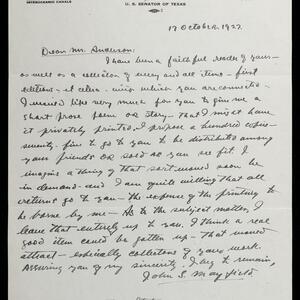 INTEROCEANIC CANALS
U. S. SENATOR OF TEXAS
17 October, 1927.
Dear Mr. Anderson:
I have been a faithful reader of yours
as well as a collector of every and all items - first
editions - et cetera - with which you are connected.
I would like very much for you to give me a
short prose poem or story - that I might have
it privately printed. I propose a hundred copies
seventy-five to go to you to be distributed among
your friends or sold as you see fit. I
imagine a thing of that sort would soon be
in demand - and I am quite willing that all
to go to you - the expense of the printing to
be borne by me - As to the subject matter, I
leave that entirely up to you. I think a real
good item could be gotten up - that would
attract - especially collectors of your work.
Assuring you of my sincerity I beg to remain,
John S. Mayfield